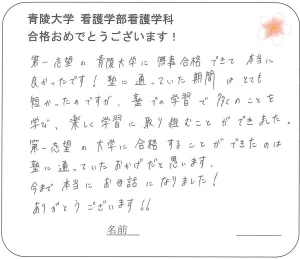 青陵大学 看護学部看護学科
合格おめでとうございます！
第一志望の青陵大学に無事合格できて本当に
良かったです！塾に通っていた期間はとても
短かったのですが、塾での学習で多くのことを
学び、楽しく学習に取り組むことができました。
第一志望の大学に合格することができたのは
塾に通っていたおかげだと思います。
今まで本当にお世話になりました！
ありがとうございます!!
名前